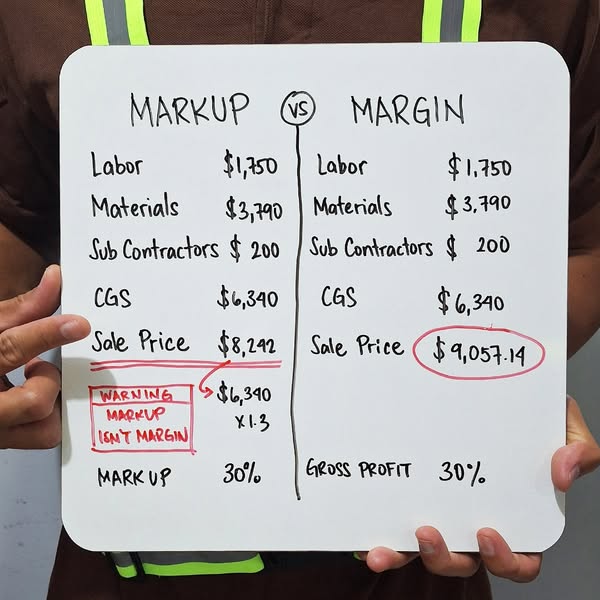 MARKUP VS MARGIN
Labor $1,750
Materials $3,790
Sub Contractors $ 200
CGS $6,340
Sale Price $8,242
WARNING
MARKUP
ISN'T MARGIN
$6,340
x1.3
MARKUP 30%
Labor $1,750
Materials $3,790
Sub Contractors $ 200
CGS $6,340
Sale Price $9,057.14
GROSS PROFIT 30%